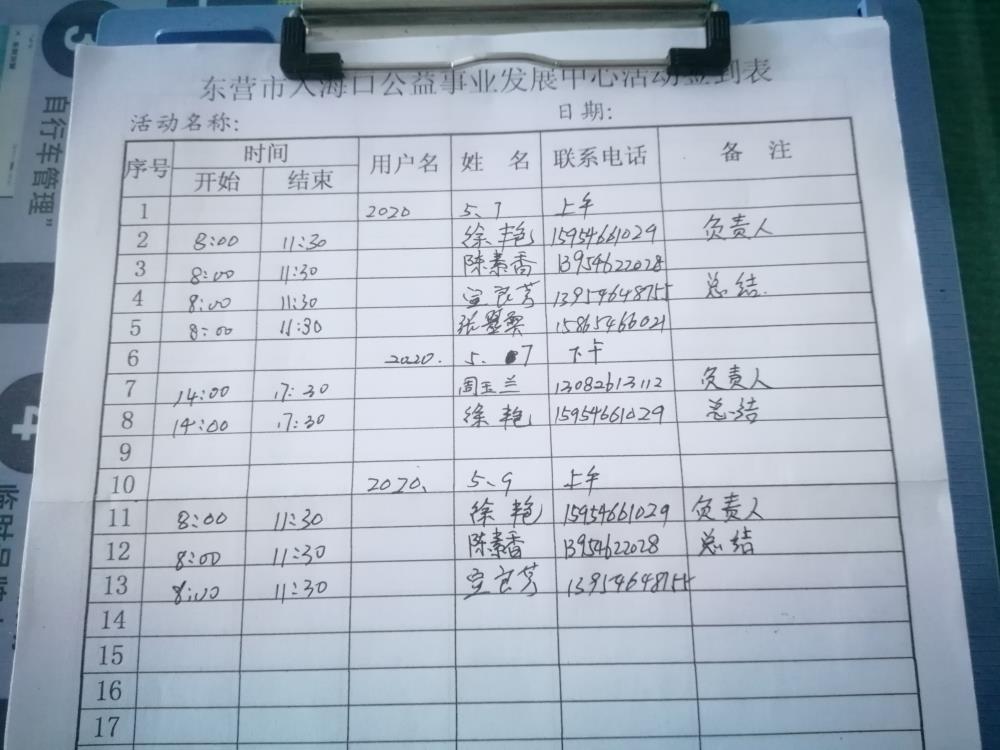 东营市入海口公益事业发展中心活动签到表
活动名称: 日期:
序号 时间 用户名 姓 名 联系电话 备 注
开始 结束
1 2020 5、7 上午
2 8:00 11:30 徐艳 15954661029 负责人
3 8:00 11:30 陈素香 13954622028
4 8:00 11:30 宣良芳 13954648755 总结
5 8:00 11:30 15865466021
6 2020. 5. 7 下午
7 14:00 17:30 周玉兰 13082613112 负责人
8 14:00 17:30 徐艳 15954661029 总结
9
10 2020、 5、9 上午
11 8:00 11:30 徐艳 15954661029 负责人
12 8:00 11:30 陈素香 13954622028 总结
13 8:00 11:30 宣良芳 13954648755
14
15
16
17
3
自行车管理"
4